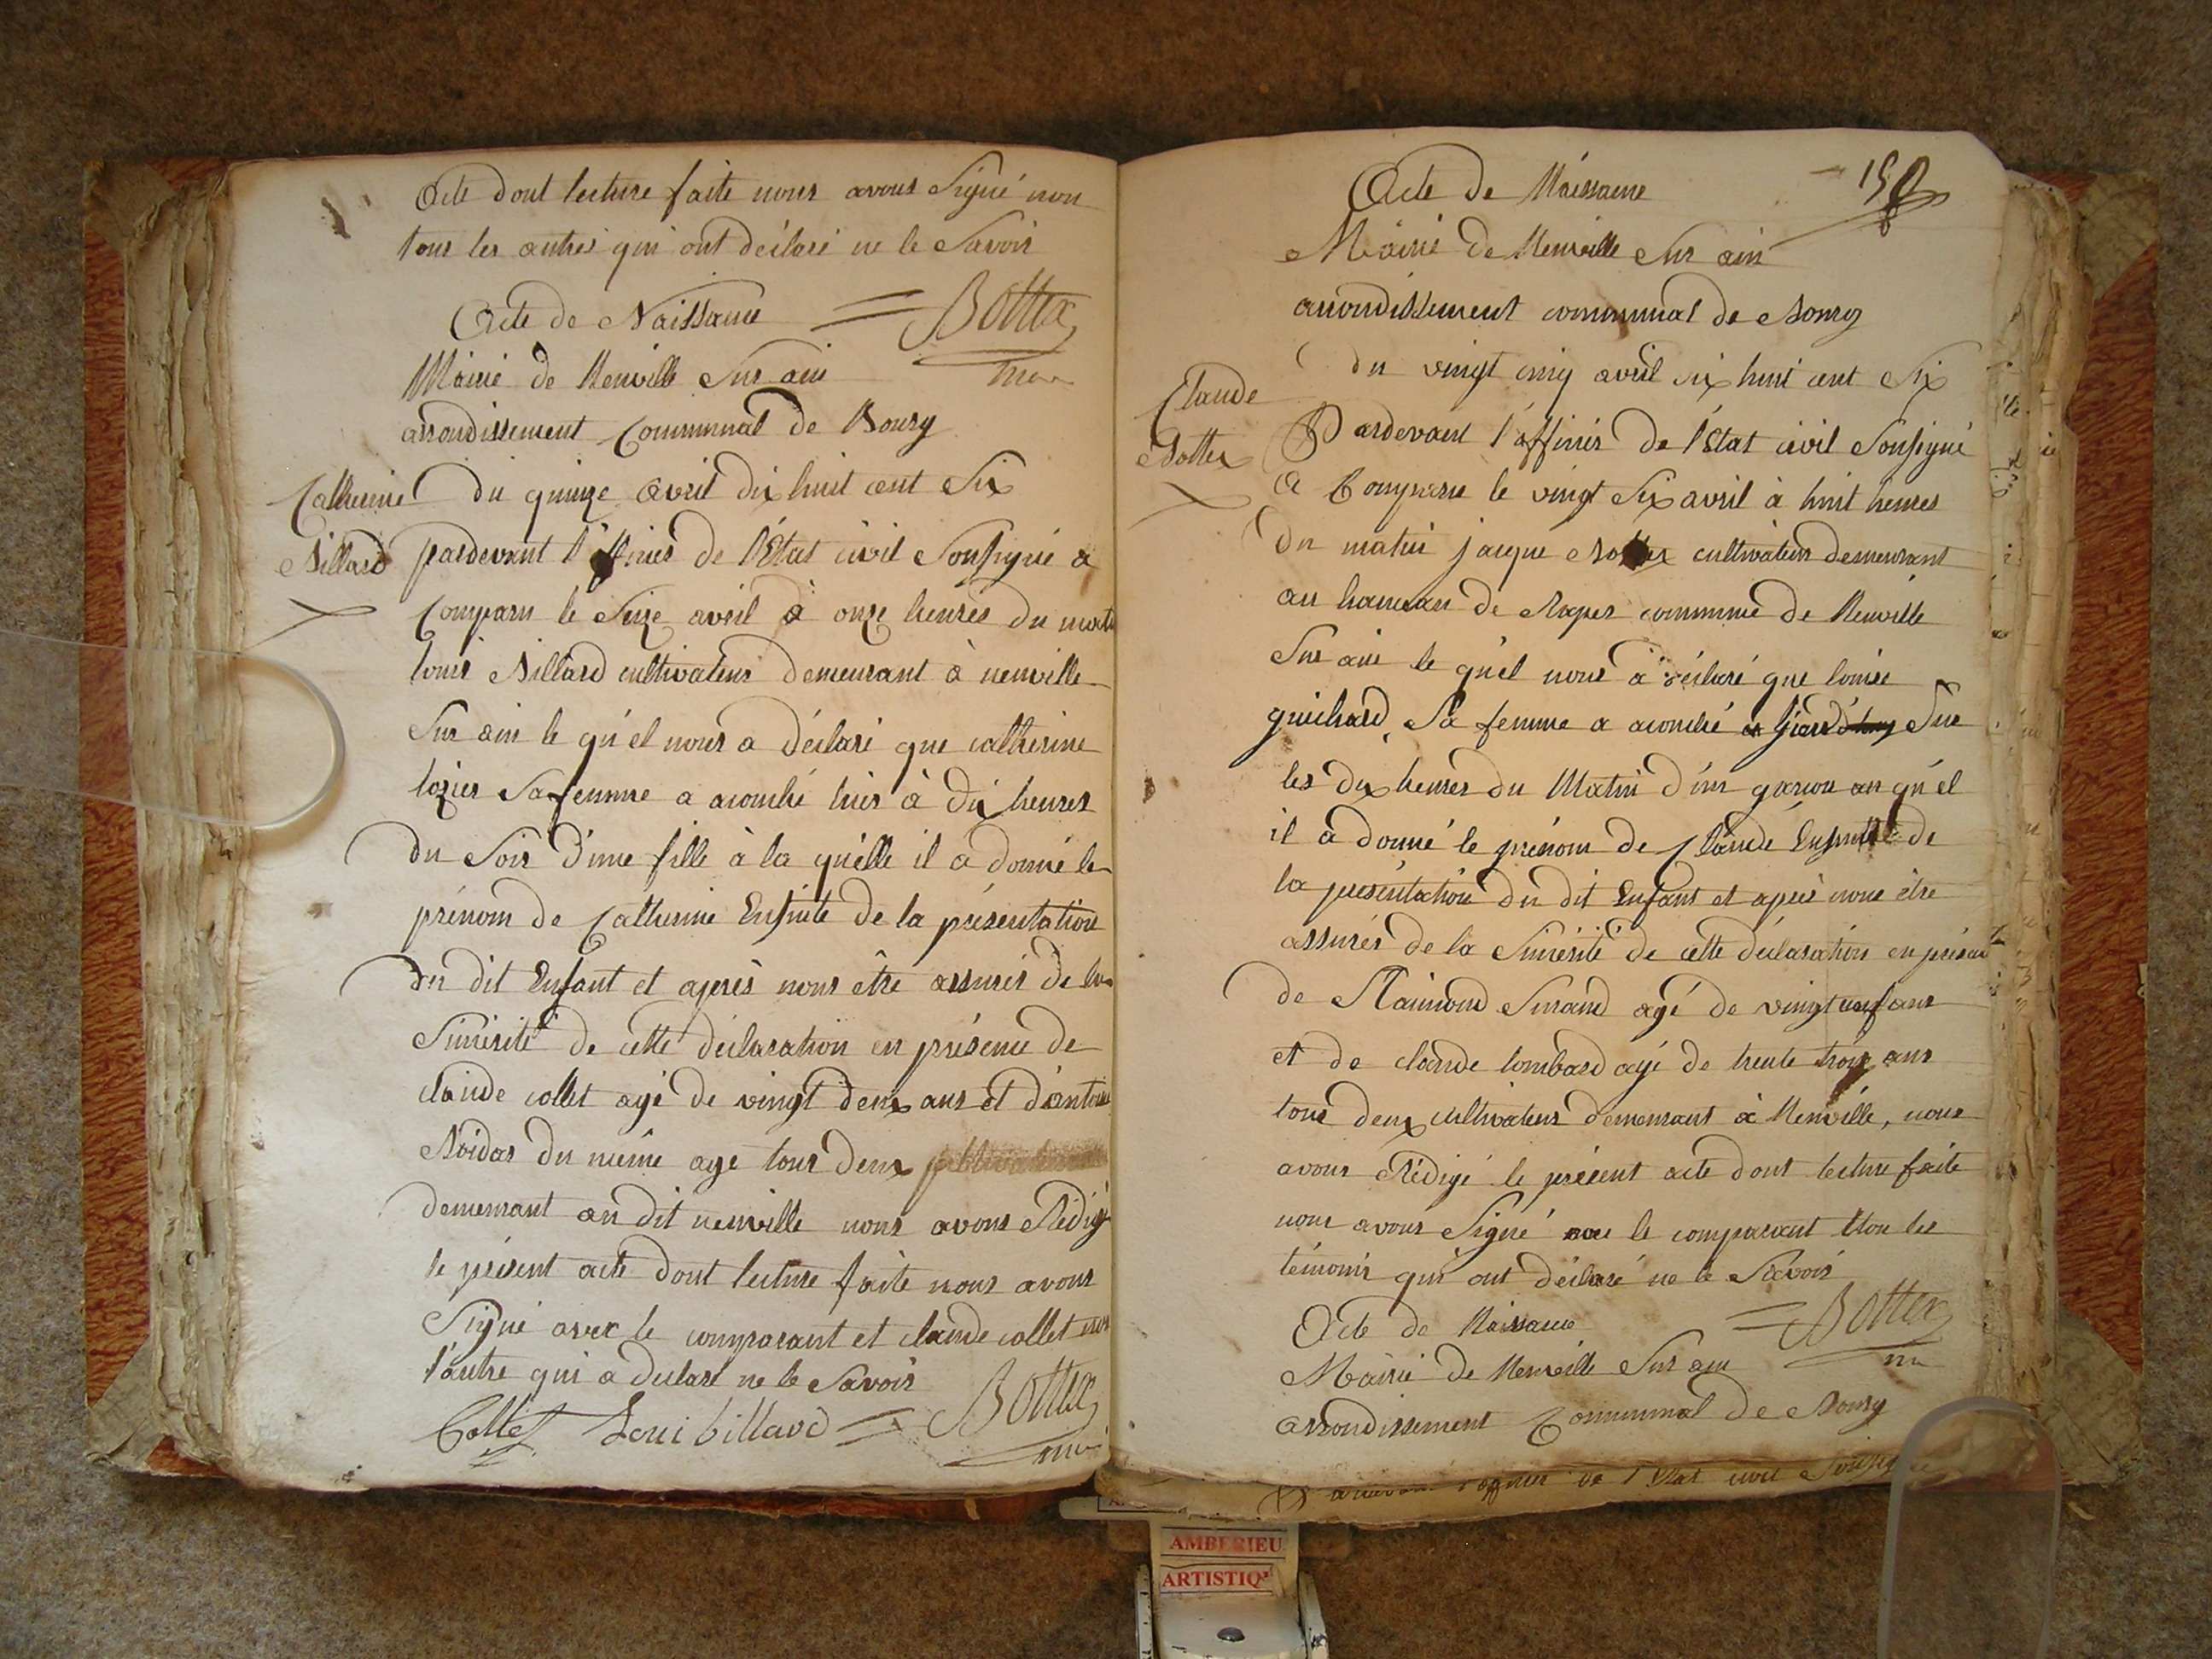 Acte dont lecture faite nous avons Signé non
tous les autres qui ont déclaré ne le Savoir
Acte de Naissance = Bottex
Mairie de Neuville Sur ain
arrondissement Communal de Bourg
Catherine
Billard
du quinze Avril dix huit cent Six
pardevant l'officier de l'Etat civil Soussigné a
Comparu le Seize avril à onze heures du matin
louis Billard cultivateur demeurant à neuville
Sur ain le qu'el nous a déclaré que catherine
lozier Sa femme a accouché hier à dix heures
du Soir d'une fille à la qu'elle il a donné le
prénom de Catherine Ensuite de la présentation
du dit Enfant et après nous être assurés de la
Sincérité de cette déclaration en présence de
claude collet agé de vingt deux ans et d'antoine
du même age tous deux
demeurant au dit neuville nous avons Rédigé
le présent acte dont lecture faite nous avons
Signé avec le comparant et claude collet non
l'autre qui a déclaré ne le Savoir
Collet Loui billard = Bottex
Acte de Naissance
Mairie de Neuville Sur ain
arrondissement communal de Bourg
Claude
Bottex
du vingt cinq avril dix huit cent Six
Pardevant l'officier de l'Etat civil Soussigné
a Comparu le vingt Six avril à huit heures
du matin jacque Bottex cultivateur demeurant
au hameau de commune de Neuville
Sur ain le qu'el nous a déclaré que louise
guichard, Sa femme a accouché Sur
les dix heures du Matin d'un garcon au qu'el
il a donné le prénom de Claude Ensuite de
la présentation du dit Enfant et après nous être
assurés de la Sincérité de cette déclaration en présence
de Raimond agé de vingt ans
et de claude lombard agé de trente trois ans
tous deux cultivateurs demeurant à Neuville, nous
avons Rédigé le présent acte dont lecture faite
nous avons Signé avec le comparant Non les
témoins qui ont déclaré ne le Savoir
Acte de Naissance = Bottex
Mairie de Neuville Sur ain
arrondissement Communal de Bourg
Pardevant l'officier de l'Etat civil Soussigné
AMBERIEU
ARTISTIQ